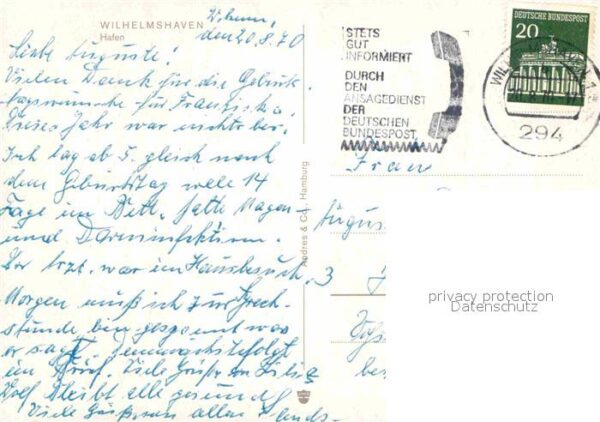 WILHELMSHAVEN
Hafen
W.haven,
den 20.8.70
Liebe Auguste!
Vielen Dank für die Geburt
tagswünsche für Franziska!
Dieses Jahr war nichts bei.
Ich lag ab 5. gleich nach
dem Geburtstag 14
Tage im Bett, hatte Magen-
und Darminfektion.
Der Arzt war im Hausbesuch. 3
Morgen muß ich zur Sprech-
stunde, bin gespannt was
er sagt. Demnächst folgt
ein Brief. Viele Grüße an
Bleibt alle gesund
Viele Grüße von allen
Andres & Co., Hamburg
STETS
GUT
INFORMIERT
DURCH
DEN
ANSAGEDIENST
DER
DEUTSCHEN
BUNDESPOST
DEUTSCHE BUNDESPOST
20
294
Frau
August
privacy protection
Datenschutz